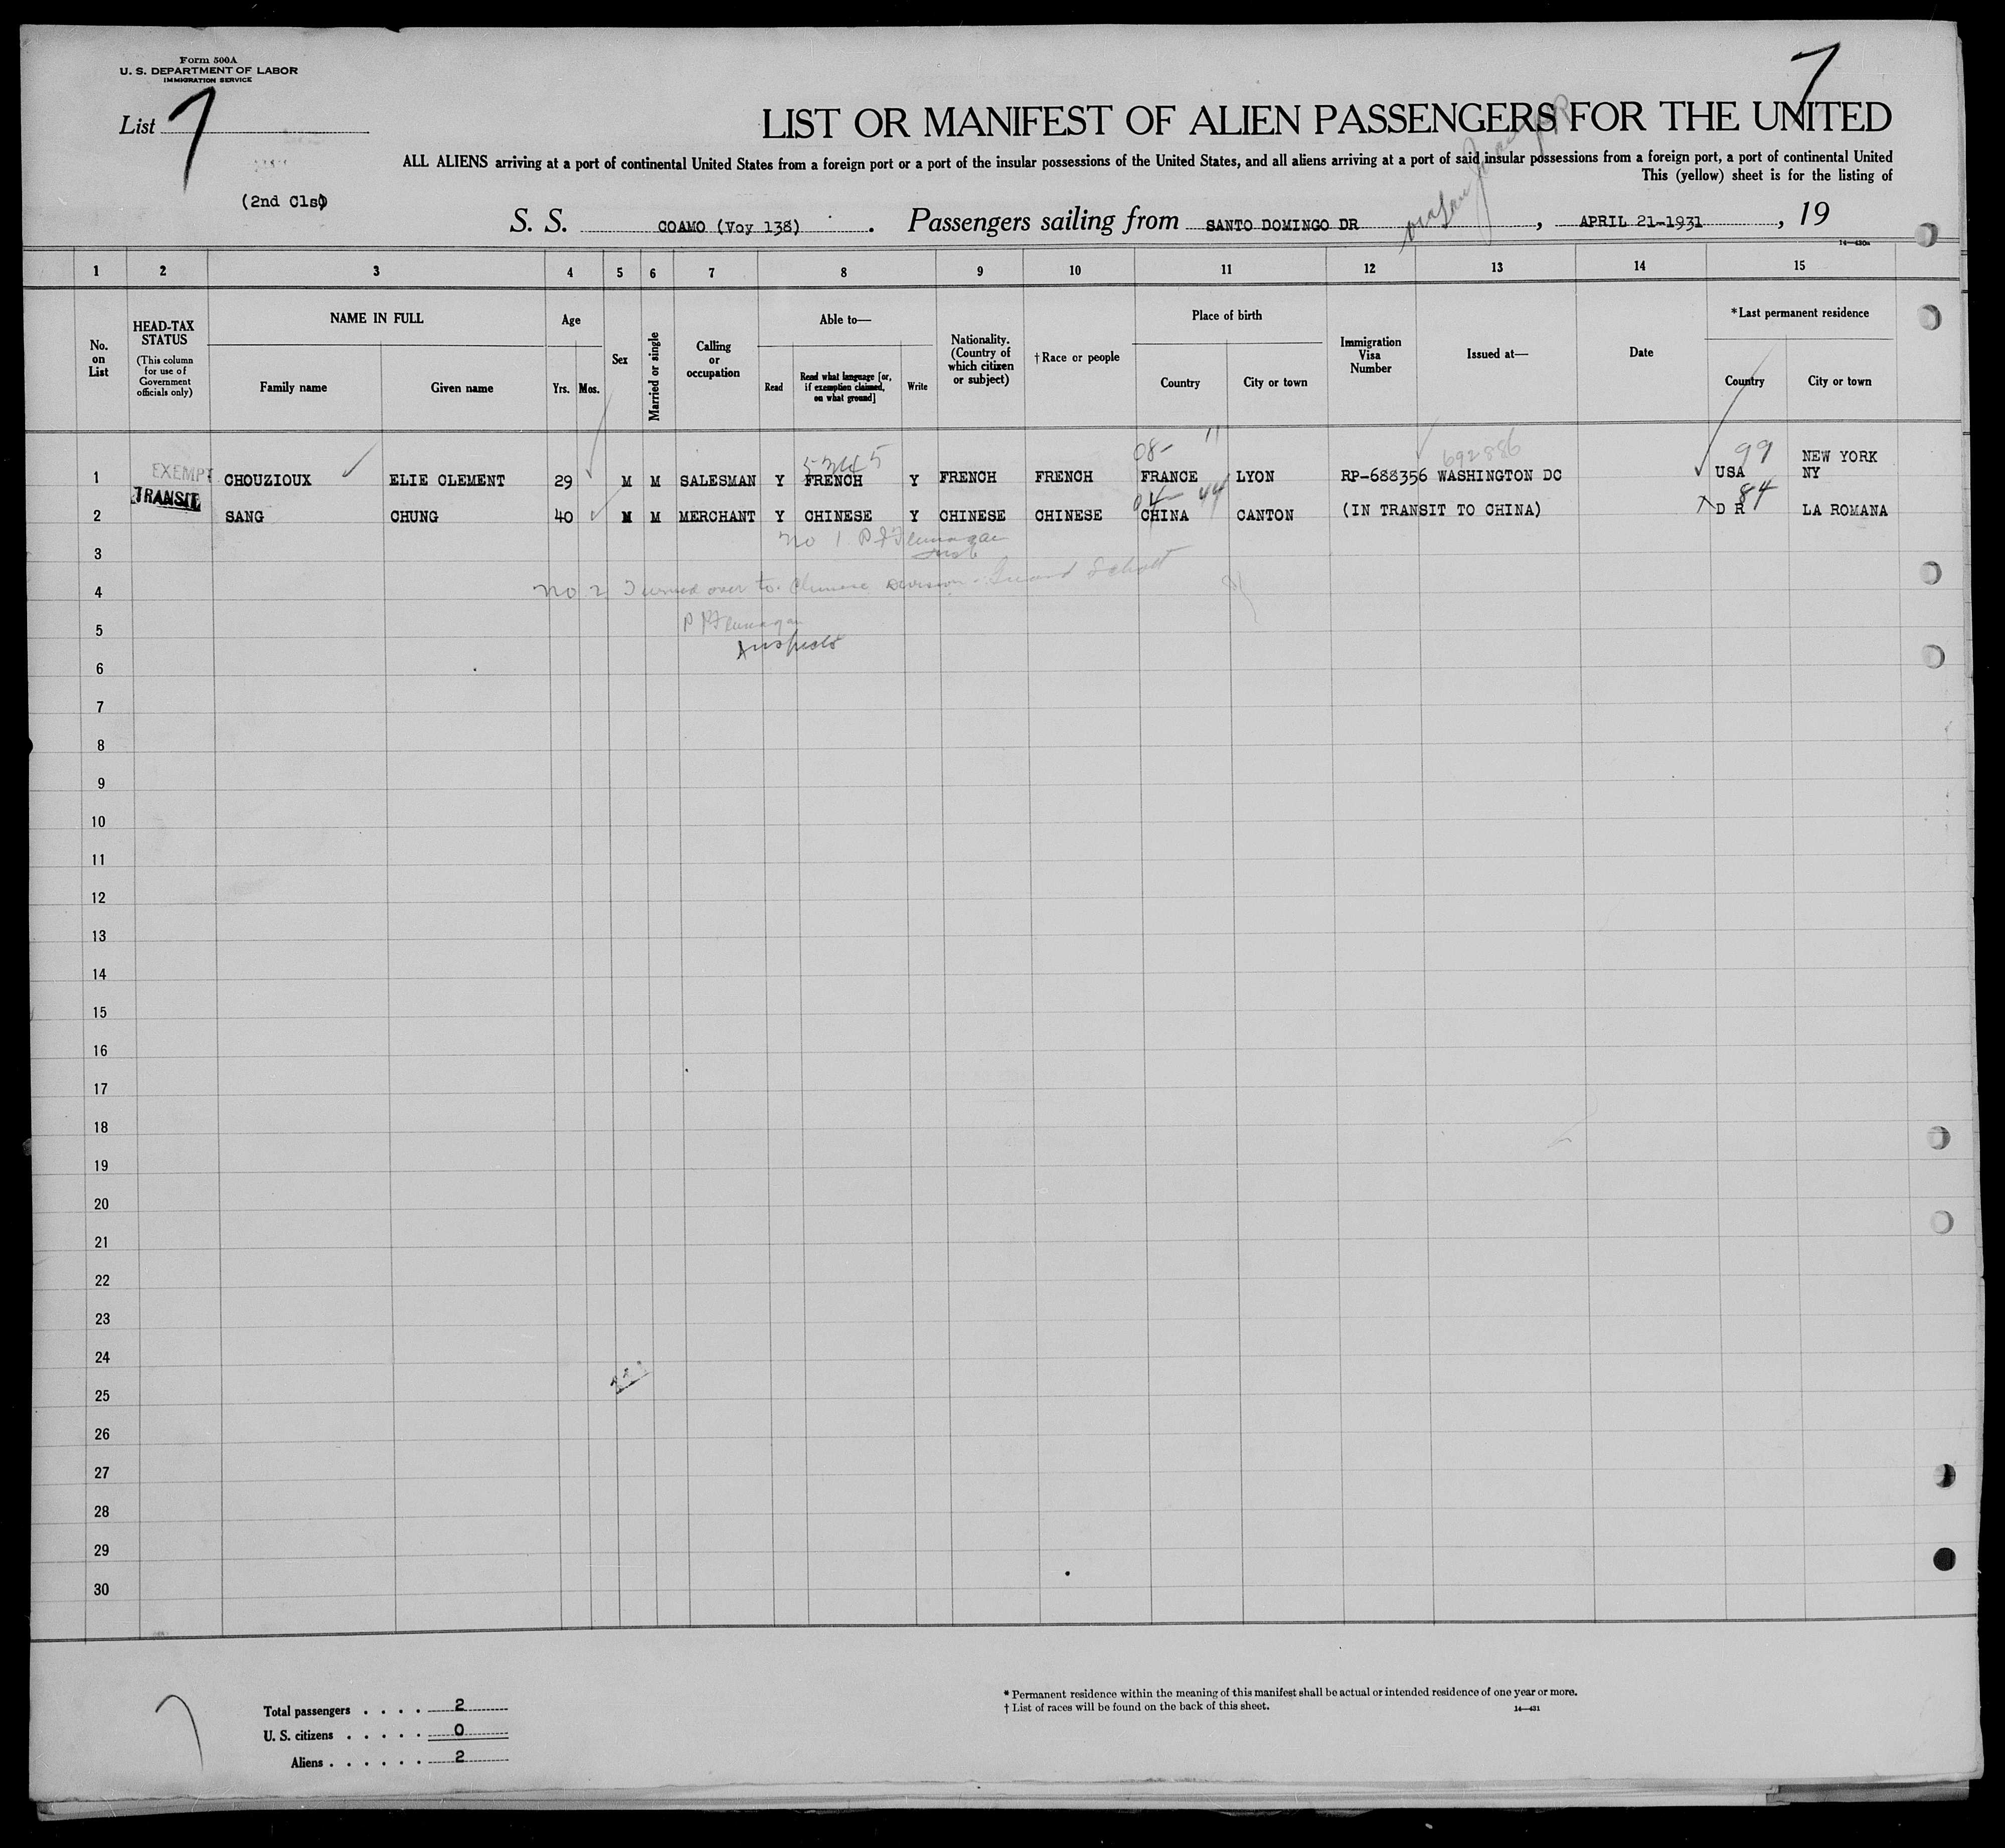 Form 500A
U. S. DEPARTMENT OF LABOR
IMMIGRATION SERVICE
List 7
7
LIST OR MANIFEST OF ALIEN PASSENGERS FOR THE UNITED
ALL ALIENS arriving at a port of continental United States from a foreign port or a port of the insular possessions of the United States, and all aliens arriving at a port of said insular possessions from a foreign port, a port of continental United
This (yellow) sheet is for the listing of
(2nd Cls)
S. S. COAMO (Voy 138). Passengers sailing from SANTO DOMINGO DR, APRIL 21-1931, 19
14—430a
1 2 3 4 5 6 7 8 9 10 11 12 13 14 15
No. on List
HEAD-TAX STATUS
(This column for use of Government officials only)
NAME IN FULL
Family name Given name
Age
Yrs. Mos.
Sex
Married or single
Calling or occupation
Able to—
Read
Read what language [or, if exemption claimed, on what ground]
Write
Nationality. (Country of which citizen or subject)
†Race or people
Place of birth
Country City or town
Immigration Visa Number
Issued at—
Date
*Last permanent residence
Country City or town
08- 11
692886
99
1 EXEMPT CHOUZIOUX ELIE CLEMENT 29 M M SALESMAN Y FRENCH Y FRENCH FRENCH FRANCE LYON RP-688356 WASHINGTON DC USA NEW YORK NY
04- 44
84
2 TRANSIT SANG CHUNG 40 M M MERCHANT Y CHINESE Y CHINESE CHINESE CHINA CANTON (IN TRANSIT TO CHINA) D R LA ROMANA
3 No 1 P Flannagan
4 No 2 Turned over to Chinese Division
5
6
7
8
9
10
11
12
13
14
15
16
17
18
19
20
21
22
23
24
25
26
27
28
29
30
Total passengers . . . . 2
U. S. citizens . . . . . 0
Aliens . . . . . . 2
* Permanent residence within the meaning of this manifest shall be actual or intended residence of one year or more.
† List of races will be found on the back of this sheet.
14—431